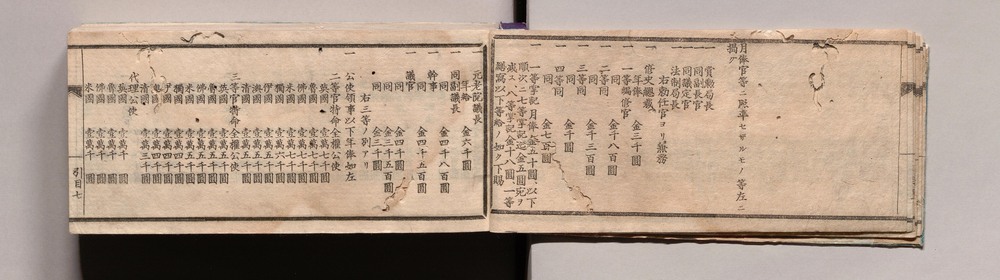 月俸官等ニ照準セザルモノ等左ニ
揭ク
賞勲局長
同副長官
同議定官
法制局長
右勅任官ヨリ兼務
一 修史總裁
年俸 金三千圓
一 一等編修官
同 金千八百圓
一 二等同
同 金千五百圓
一 三等同
同 金千三百圓
一 四等同
同 金千圓
同 金七百圓
一 一等掌記月俸金五十圓、以下
順次二七等掌記迄金五圓宛ヲ
減ス、八等掌記金十八圓、一等
賜寫以下等給ノ如ク下賜
元老院議長
年給 金六千圓
一 同副議長
同 金四千八百圓
一 幹事
同 金四千五百圓
一 議官
同 金四千圓
同 金三千五百圓
同 金三千圓
右三等ノ別アリ
一 公使領事以下年俸如左
二等官特命全權公使
英國 壹萬七千圓
魯國 壹萬七千圓
佛國 壹萬七千圓
米國 壹萬五千圓
澳國 壹萬五千圓
伊國 壹萬五千圓
清國 壹萬五千圓
三等官特命全權公使
英國 壹萬五千圓
魯國 壹萬五千圓
佛國 壹萬五千圓
米國 壹萬三千圓
獨國
伊國
清國 壹萬三千圓
代理公使
英國 壹萬千圓
魯國 壹萬千圓
佛國 壹萬千圓
米國 壹萬圓
引目七